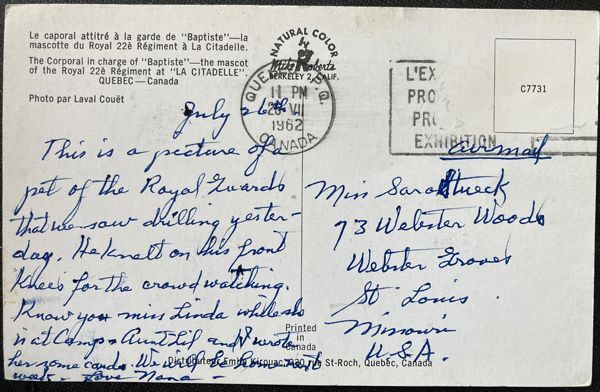 Le caporal attitré à la garde de "Baptiste"—la
mascotte du Royal 22è Régiment à La Citadelle.
The Corporal in charge of "Baptiste"—the mascot
of the Royal 22è Regiment at "LA CITADELLE".
QUEBEC—Canada
Photo par Laval Couët
NATURAL COLOR
by
Mike Roberts
BERKELEY 2, CALIF.
QUEBEC P.Q.
11 PM
26 VII
1962
CANADA
L'EX
PRO
PRO
EXHIBITION
C7731
July 26th
This is a picture of a
pet of the Royal Guards
that we saw drilling yester-
day. He knelt on his front
knees for the crowd watching.
Know you miss Linda while she
is at Camp. Aunt Lil and I wrote
her some cards. We will be home next
week - Love Nana -
air mail
Miss Sara Stueck
73 Webster Woods
Webster Groves
St Louis
Missouri
U.S.A.
Printed
in
Canada
St-Roch, Quebec, Canada